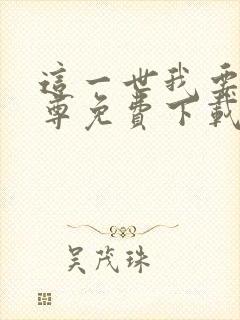 這一世我要
尊免費下載
吴茂珠